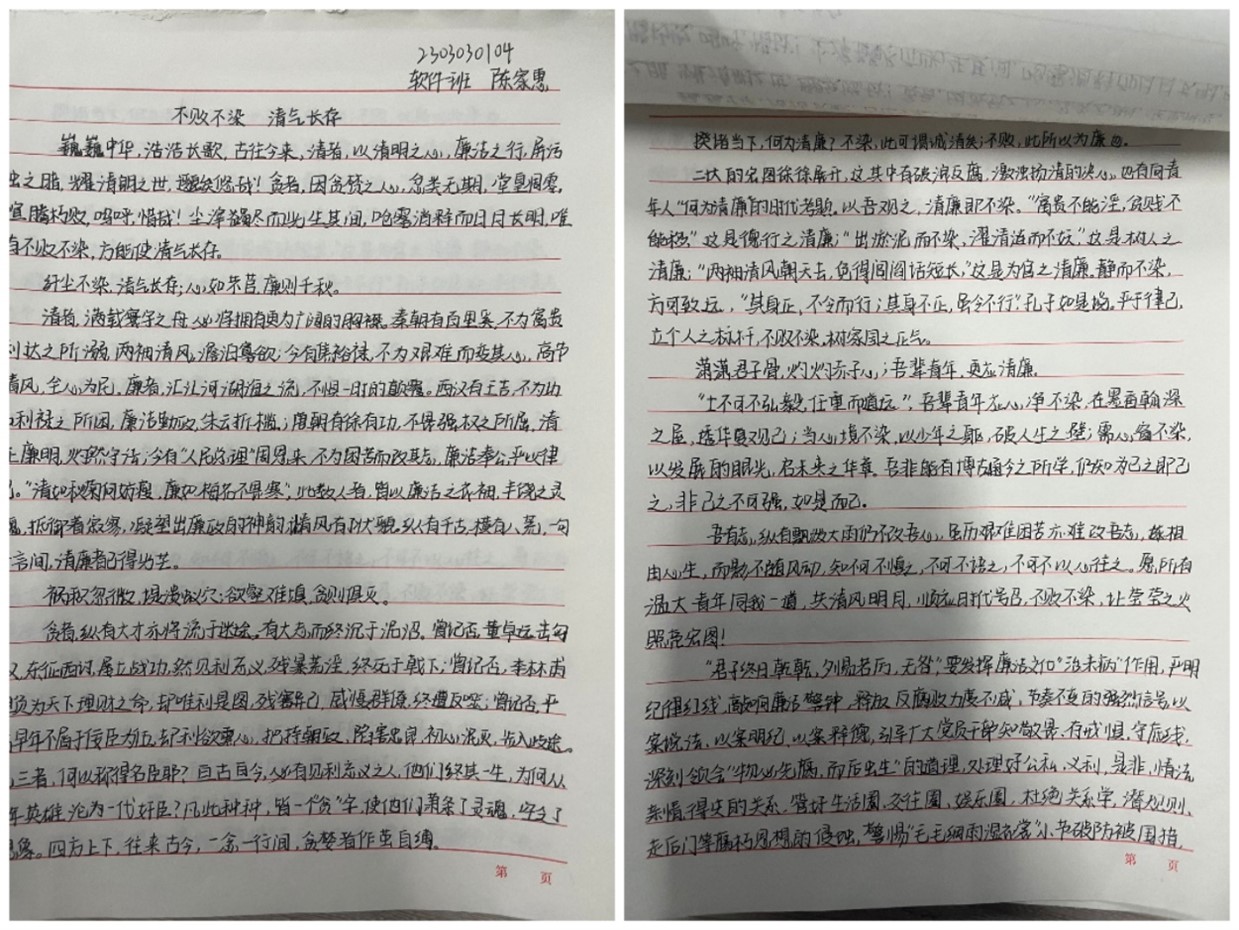 2303030104
软件一班 陈家惠
不败不染 清气长存
巍巍中华,浩浩长歌,古往今来,清者,以清明之心,廉洁之行,屏污
之腊,耀清朗之世,遨矣悠哉!贪者,因贪婪之心,忽类无期,堂皇凋零,
宣腾朽败,呜呼,惜哉!尘滓蠲尽而此生其间,阴霾消释而日月长明,唯
有不败不染,方能使清气长存。
纤尘不染,清气长存;心如朱萏,廉则千秋。
清者,满载寰宇之舟,心将拥有更为广阔的胸襟。秦朝有百里奚,不为富贵
利达之所溺,两袖清风,澹泊寡欲;今有焦裕禄,不为艰难而变其心,高节
清风,全心为民。廉者,汇江河湖海之流,不惧一时的颠覆。西汉有王吉,不为功
利禄之所困,廉洁勤政,朱云折槛;唐朝有徐有功,不畏强权之所屈,清
正廉明,灼然守法;今有“人民总理”周恩来,不为困苦而改其志,廉洁奉公,严以律
己。“清如秋菊何妨瘦,廉如梅花不畏寒”;此数人者,皆以廉洁之衣袖,丰茂之灵
魂,抵御着寂寒,凝望出廉政的神韵,清风有功大貌,纵有千古,横有八荒,一句
一言间,清廉者已得光芒。
祸积忽微,堤溃蚁穴;欲壑难填,贪则俱灭。
贪者,纵有大才亦将流于迷途。有大志而终沉于泥沼。曾记否,董卓远击匈
奴,东征西讨,屡立战功,然见利忘义,残暴荒淫,终死于戟下;曾记否,李林甫
负为天下理财之命,却唯利是图,残害异己,威慑群僚,终遭反噬;曾记否,严
嵩早年不屑于佞臣为伍,却利欲熏心,把持朝政,陷害忠良,初心泯灭,步入歧途。
此三者,何以称得名臣耶?自古自今,人心有见利忘义之人,他们终其一生,为何从
年英雄沦为一代奸臣?凡此种种,皆一个“贪”字,使他们萧条了灵魂,空乏了
想象。四方上下,往来古今,一念一行间,贪婪者作茧自缚。
第 页
揆诸当下,何为清廉?不染,此可谓诚清矣;不败,此所以为廉也。
二大的宏图徐徐展开,这其中有破浪反腐,激浊扬清的决心,也有问青
年人“何为清廉”的时代考题。以吾观之,清廉即不染。“富贵不能淫,贫贱不
能移”这是德行之清廉;“出淤泥而不染,濯清涟而不妖”这是树人之
清廉;“两袖清风朝天去,免得闾阎话短长,”这是为官之清廉。静而不染,
方可致远,“其身正,不令而行;其身不正,虽令不行”孔子如是说。严于律己,
立个人之标杆,不败不染,树家国之正气。
潇潇君子骨,灼灼赤子心;吾辈青年,更应清廉。
“士不可不弘毅,任重而道远”,吾辈青年应心净不染,在墨画翰深
之屋,透华夏观己;当心境不染,以少年之躯,破人生之壁;需心窗不染,
以发展的眼光,启未来之华章。吾非能有博古通今之所学,仍知为己之即己
之,非己之不可强,如是而已。
吾有志,纵有飘泼大雨仍不改吾心,虽历艰难困苦亦难改吾志,越相
由心生,而影不随风动,知何不慎之,不可不语之,不可不以心往之。愿所有
温大青年同我一道,共清风明月,顺应时代号召,不败不染,让莹莹之火
照亮宏图!
“君子终日乾乾,夕惕若厉,无咎”要发挥廉洁文化“治未病”作用,严明
纪律红线,敲响廉洁警钟,释放反腐败力度不减,节奏不变的强烈信号,以
案说法、以案明纪、以案释德,引导广大党员干部知敬畏、存戒惧、守底线,
深刻领会“物必先腐,而后虫生”的道理,处理好公私、义利、是非、情法、
亲情得失的关系,管好生活圈、交往圈、娱乐圈,杜绝关系学,潜规则,
走后门等腐朽思想的侵蚀,警惕“毛毛细雨湿衣裳”小节破防被围猎,
第 页